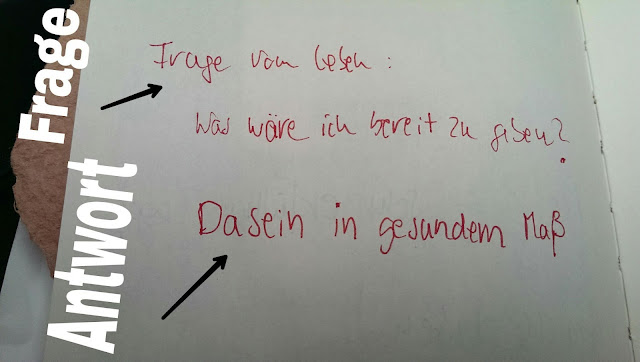 Frage
Frage vom Leben:
Was wäre ich bereit zu geben?
Antwort
Dasein in gesundem Maß